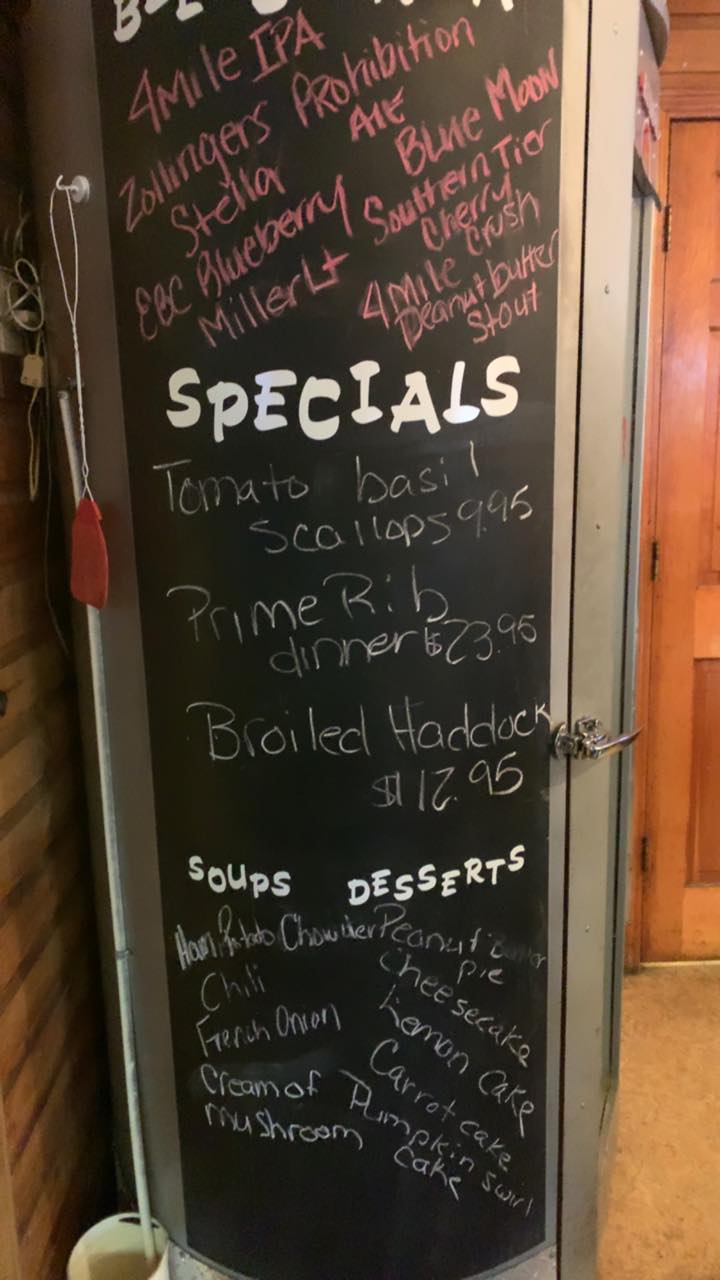 4Mile IPA
Zollingers Prohibition
Ale
Stella
Blue Moon
EBC Blueberry
Southern Tier
Cherry
Crush
Miller Lt
4Mile
Peanutbutter
Stout
SPECIALS
Tomato basil
Scallops 9.95
Prime Rib
dinner $23.95
Broiled Haddock
$12.95
SOUPS
Ham Potato Chowder
Chili
French Onion
Cream of
mushroom
DESSERTS
Peanut Butter
pie
Cheesecake
Lemon Cake
Carrot cake
Pumpkin swirl
cake